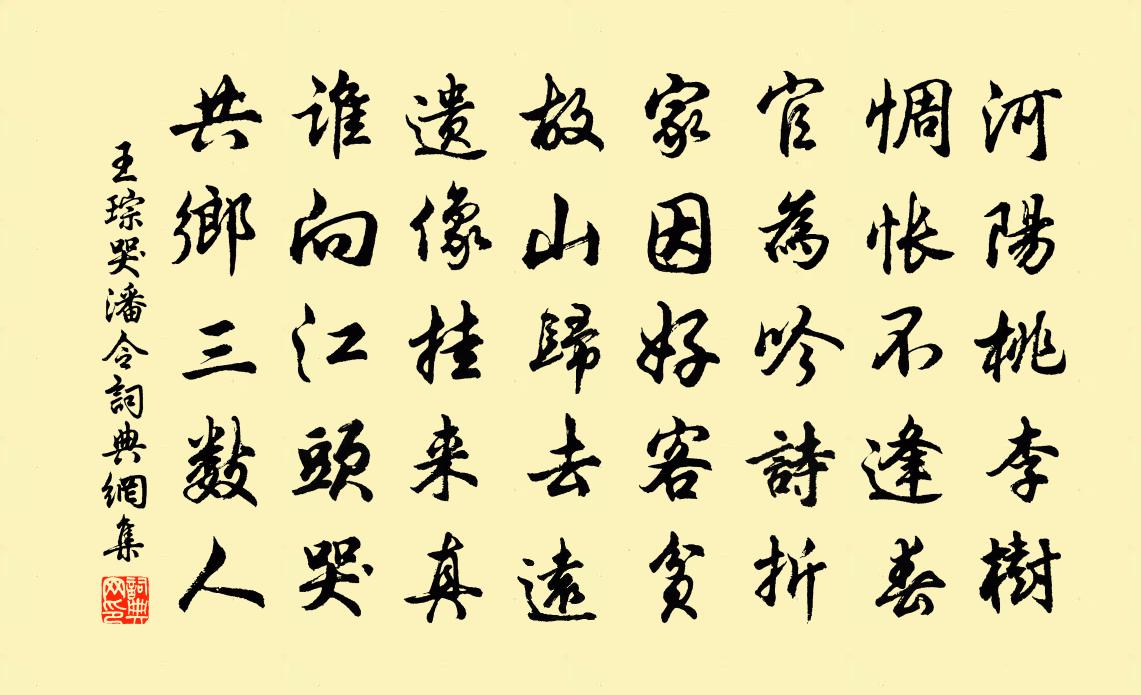 河陽桃李樹
惆怅不逢春
官為吟詩折
家因好客貧
故山歸去遠
遺像挂来真
誰向江頭哭
共鄉三數人
王琮哭潘令詞典網集
詞典網印